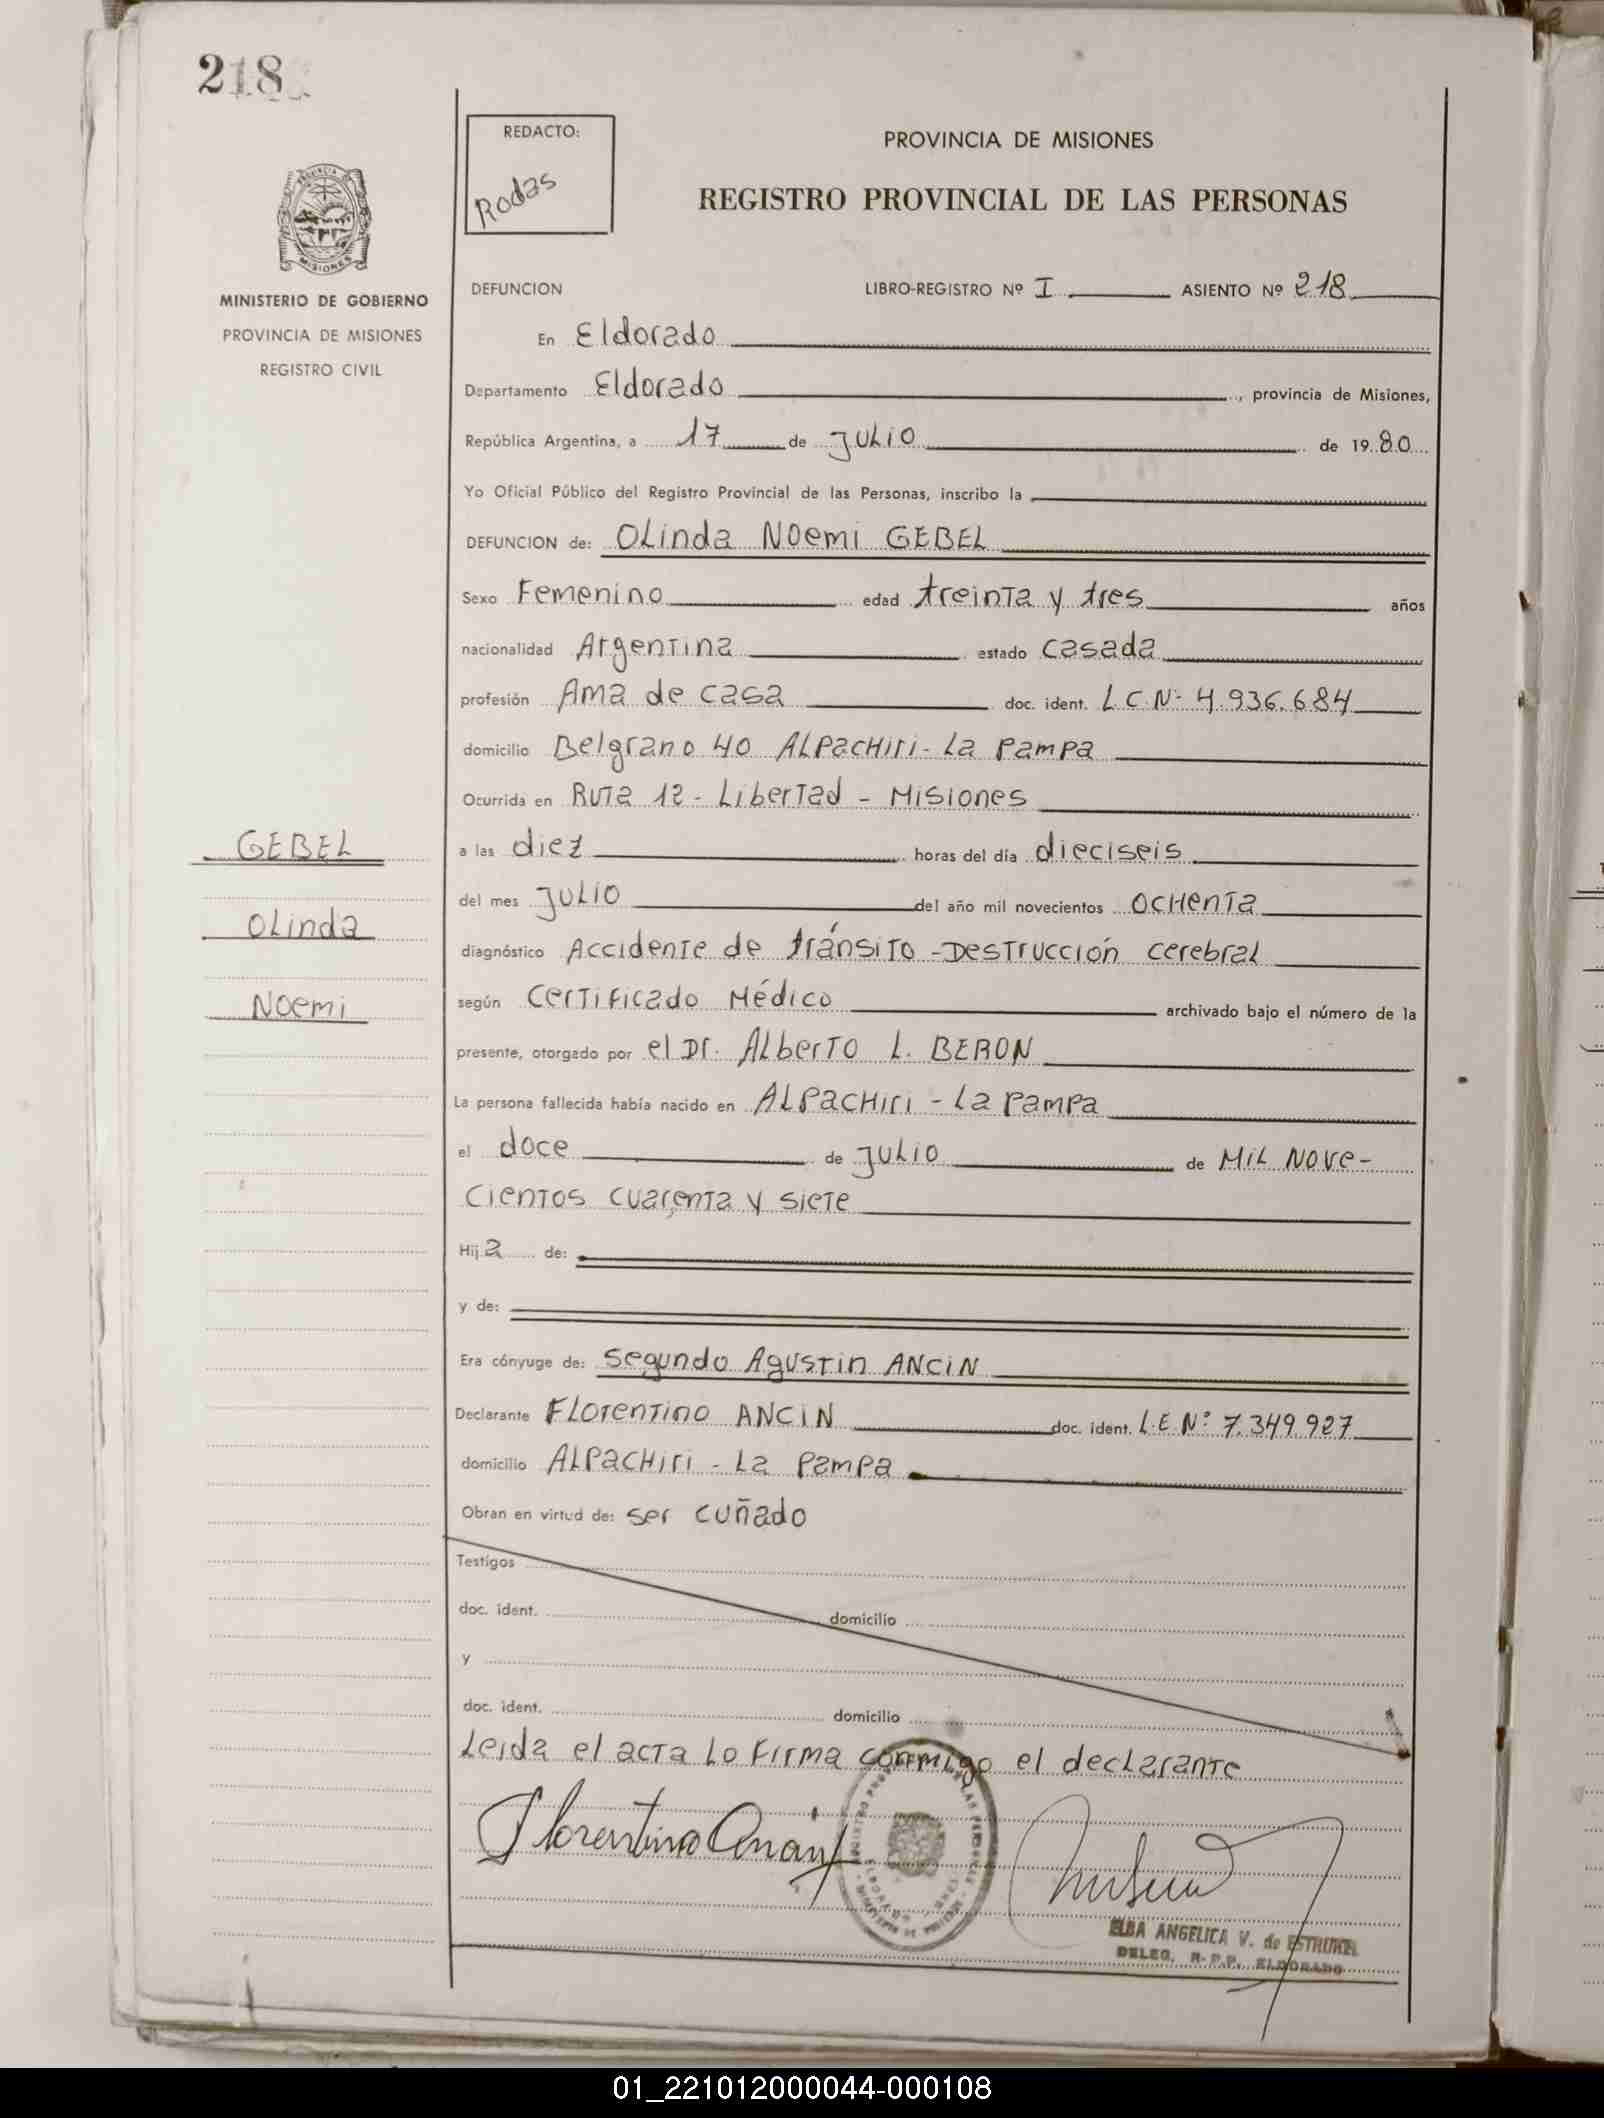 218
REDACTO:
Rodas
PROVINCIA DE MISIONES
REGISTRO PROVINCIAL DE LAS PERSONAS
PROVINCIA DE
MISIONES
MINISTERIO DE GOBIERNO
PROVINCIA DE MISIONES
REGISTRO CIVIL
DEFUNCION LIBRO-REGISTRO Nº I ASIENTO Nº 218
En Eldorado
Departamento Eldorado, provincia de Misiones,
República Argentina, a 17 de julio de 1980
Yo Oficial Público del Registro Provincial de las Personas, inscribo la
DEFUNCION de: Olinda Noemi GEBEL
Sexo Femenino edad treinta y tres años
nacionalidad Argentina estado casada
profesión Ama de casa doc. ident. L.C.Nº 4.936.684
domicilio Belgrano 40 Alpachiri - La Pampa
Ocurrida en Ruta 12 - Libertad - Misiones
a las diez horas del día dieciseis
del mes julio del año mil novecientos ochenta
diagnóstico Accidente de tránsito - Destrucción cerebral
según Certificado Médico archivado bajo el número de la
presente, otorgado por el Dr. Alberto L. BERON
La persona fallecida había nacido en Alpachiri - La Pampa
el doce de julio de mil nove-
cientos cuarenta y siete
Hija de:
y de:
Era cónyuge de: Segundo Agustin ANCIN
Declarante Florentino ANCIN doc. ident. L.E.Nº 7.349.927
domicilio Alpachiri - La Pampa
Obran en virtud de: ser cuñado
Testigos
doc. ident. domicilio
y
doc. ident. domicilio
Leida el acta lo firma conmigo el declarante
GEBEL
Olinda
Noemi
Florentino Ancin
ELBA ANGELICA V. de
DELEG. R.P.P. ELDORADO
01_221012000044-000108